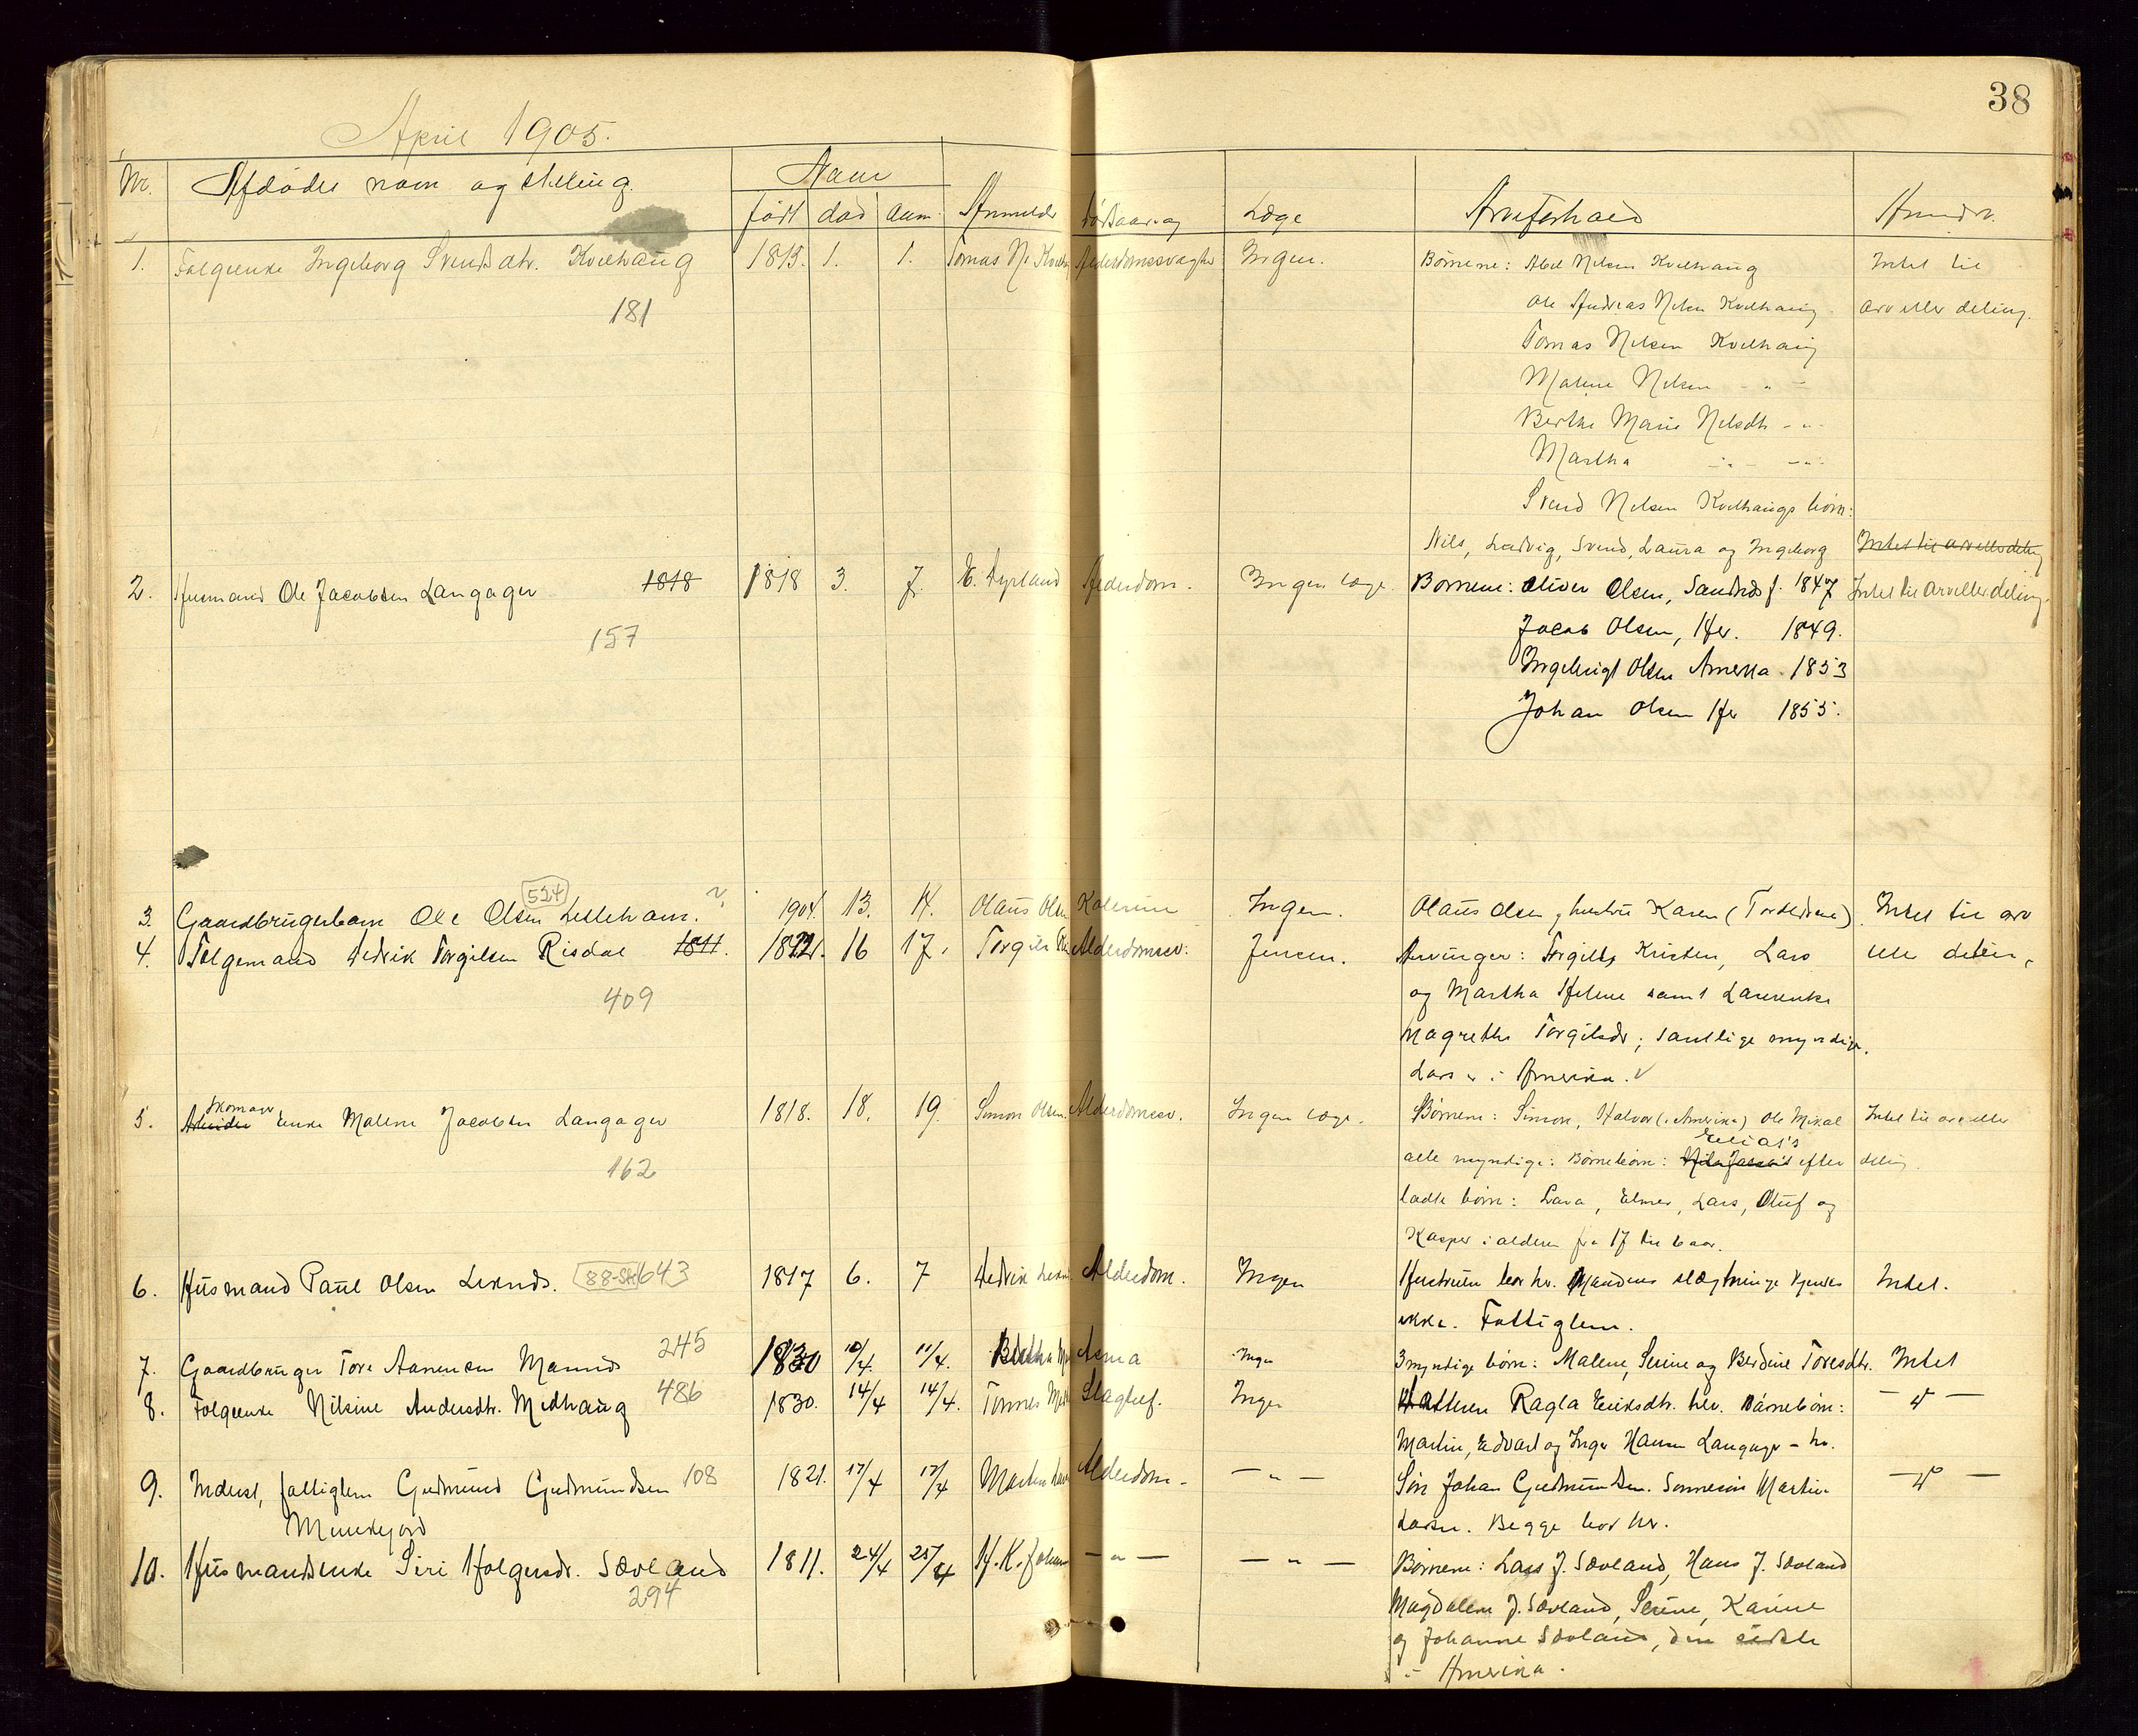 38
April 1905.
Nr. Afdødes navn og stilling. Naar Anmelder Dødsaarsag Læge Arveforhold Anmdr.
født død anm.
1. Folgeenke Ingeborg Svendsdtr. Kvelhaug 1813. 1. 1. Tomas N. Alderdomssvaghed Ingen. Børnene: Abel Nilsen Kvelhaug Intet til
181 Ole Andreas Nilsen Kvelhaug arv eller deling.
Tomas Nilsen Kvelhaug
Malene Nilsen - " -
Berthe Marie Nilsdtr - " -
Martha - " - - " -
Svend Nilsen Kvelhaugs børn:
Nils, Ludvig, Svend, Laura og Ingeborg Intet til arv eller deling
2. Husmand Ole Jacobsen Langager 1818 1818 3. 7. E. Tyrland Alderdom. Ingen læge. Børnene: Oliver Olsen, Sandnes f. 1847 Intet til arv eller deling.
157 Jacob Olsen, Her. 1849.
Ingebrigt Olsen Amerika. 1853
Johan Olsen Her 1855.
3. Gaardbrugerbarn Ole Olsen 524 Lilleham. 1904. 13. 14. Olaus Olsen Kolerine Ingen. Olaus Olsen, hustru Karen (Tordisdre) Intet til arv
4. Folgemand Fedrik Torgilsen Risdal 1811. 1821. 16 17. Torgils Alderdomssv. Jensen. Arvinger: Torgills, Kristen, Lars elle delin,
409 og Martha Helene samt Laverenke
Magrethe Torgilsdr; samtlige myndige.
Lars er i Amerika. √
5. Arbeider Skomager Enke Malene Jacobsen Langager 1818. 18. 19. Simon Olsen. Alderdomssv. Ingen læge. Børnene: Simon, Halvor (i Amerika) Ole Mikal Intet til arv eller
Elias's
162 alle myndige: Børnebørn: efter deling.
ladte børn: Lava, Elmer, Lars, Oluf og
Kasper i alderen fra 17 til 6 aar.
6. Husmand Paul Olsen Leknds. 88-SH 643 1817 6. 7 Fedrik Alderdom. Ingen Hustruen bor hr. Mandens slægtninge kjendes Intet.
ikke. Fattiglem.
7. Gaardbruger Tore Aanensen Mannds 245 1830 10/4 11/4. Bertha Asma Ingen 3 myndige børn: Malene, Serine og Berdine Toresdtr. Intet
8. Folgeenke Nilsine Andersdtr. Midhaug 486 1830. 14/4 14/4. Tønnes Slagtilf. Ingen Datteren Ragla Eriksdtr. her. Børnebørn: - " -
Martin, Edvart og Inga Hansen Langager - hr.
9. Inderst, fattiglem Gudmund Gudmundsen 108 1821. 17/4 17/4 Martin Alderdom - - " - Søn Johan Gudmundsen. Sønnesøn Martin - " -
Munkejord Larsen. Begge bor her.
10. Husmandsenke Siri Holgersdr. Søvland 1811. 24/4 25/4 H. K. - " - - " - Børnene: Lars J. Søvland, Hans J. Søvland
294 Magdalene J. Søvland, Serine, Karine
og Johanne Søvland, den sidste
i Amerika.